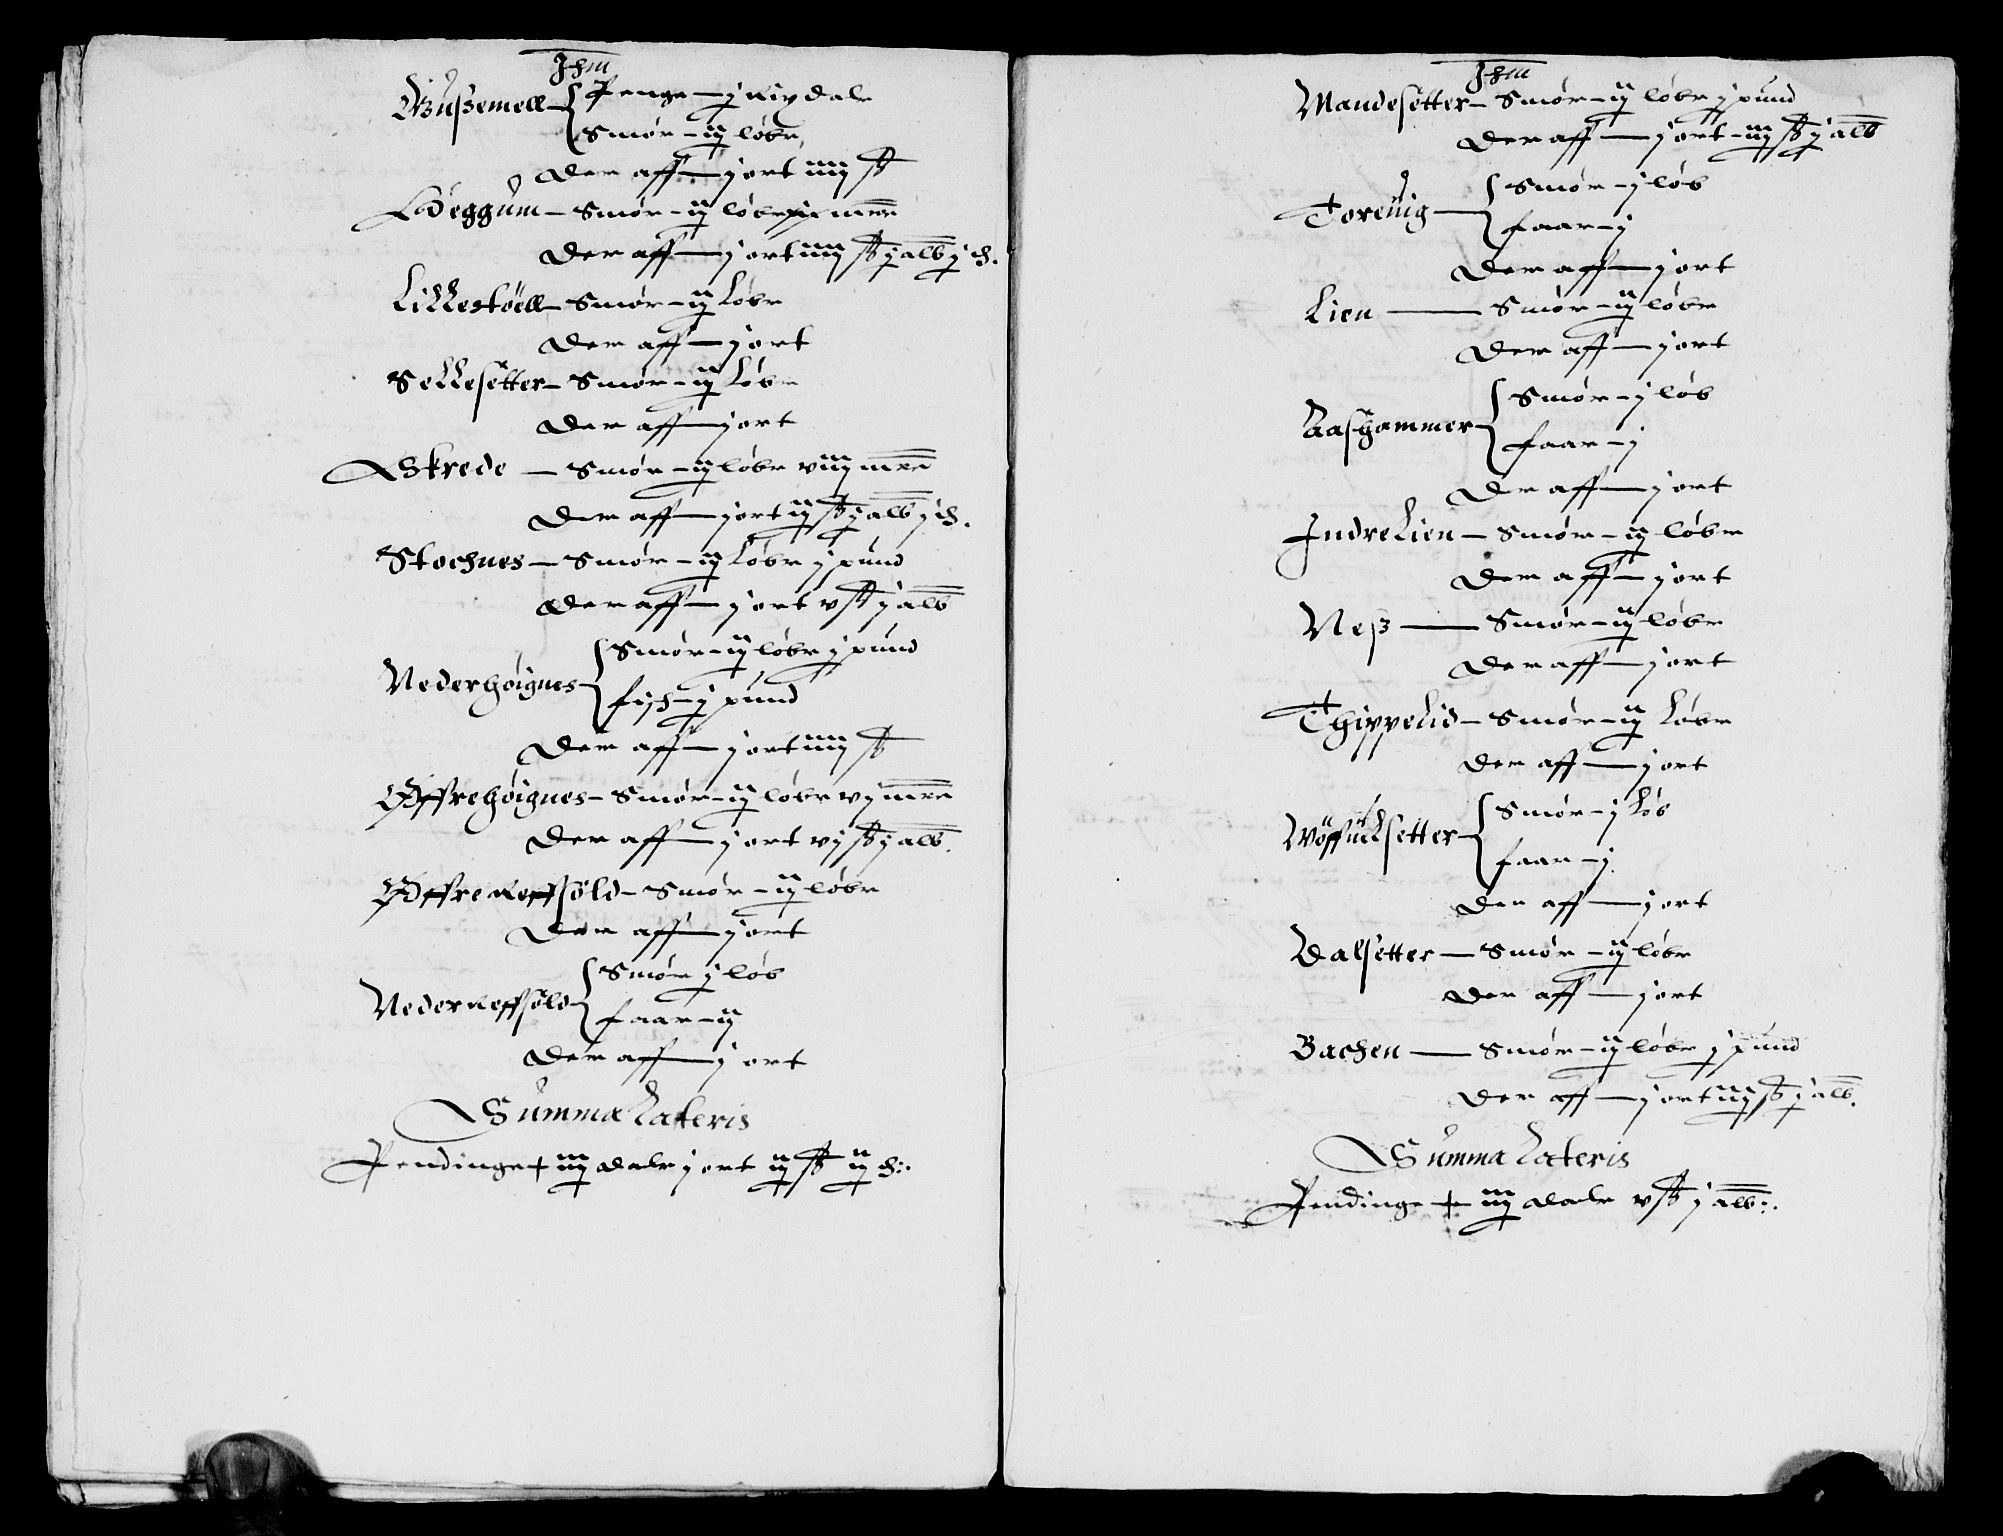 Jhm
Bußemell { Penge – j Rixdale
Smør – ij løbe
Der aff – j ort iiij ß
Heggum – Smør – ij løbe mrc
Der aff – j ort iiij ß j alb j ch.
Lillestöell – Smør – ij Løbe
Der aff – j ort
Sellesetter – Smør – ij Løbe
Der aff – j ort
Skrede – Smør – ij løbe viij mrc
Der aff – j ort ij ß j alb j ch.
Stochnes – Smør – ij Løbe j pund
Der aff – j ort v ß j alb
Nederhøignes { Smør – ij løbe j pund
fisch – j pund
Der aff – j ort iiij ß
Øffrehøignes – Smør – ij løbe vj mrc
Der aff – j ort vj ß j alb.
Øffre Reffsøld – Smør – ij løbe
Der aff – j ort
Neder Reffsøld { Smør j løb
faar – ij
Der aff – j ort
Summa Lateris
Pendinge + iiij dale j ort ij ß ij ch:.
Jhm
Mandesetter – Smør – ij løbe j pund
Der aff – j ort – iiij ß j alb
Toreuig { Smør – j løb
faar – j
Der aff – j ort
Lien – Smør – ij løbe
Der aff – j ort
Aashammer { Smør – j løb
faar – j
Der aff – j ort
Indre Lien – Smør – ij løbe
Der aff – j ort
Neß – Smør – ij løbe
Der aff – j ort
Thippelid – Smør – ij Løbe
Der aff – j ort
{ Smør – j Løb
faar – j
Der aff – j ort
Dalsetter – Smør – ij løbe
Der aff – j ort
Bachen – Smør – ij løbe j pund
Der aff – j ort iiij ß j alb.
Summa Lateris
Pendinge + iiij dale v ß j alb:.